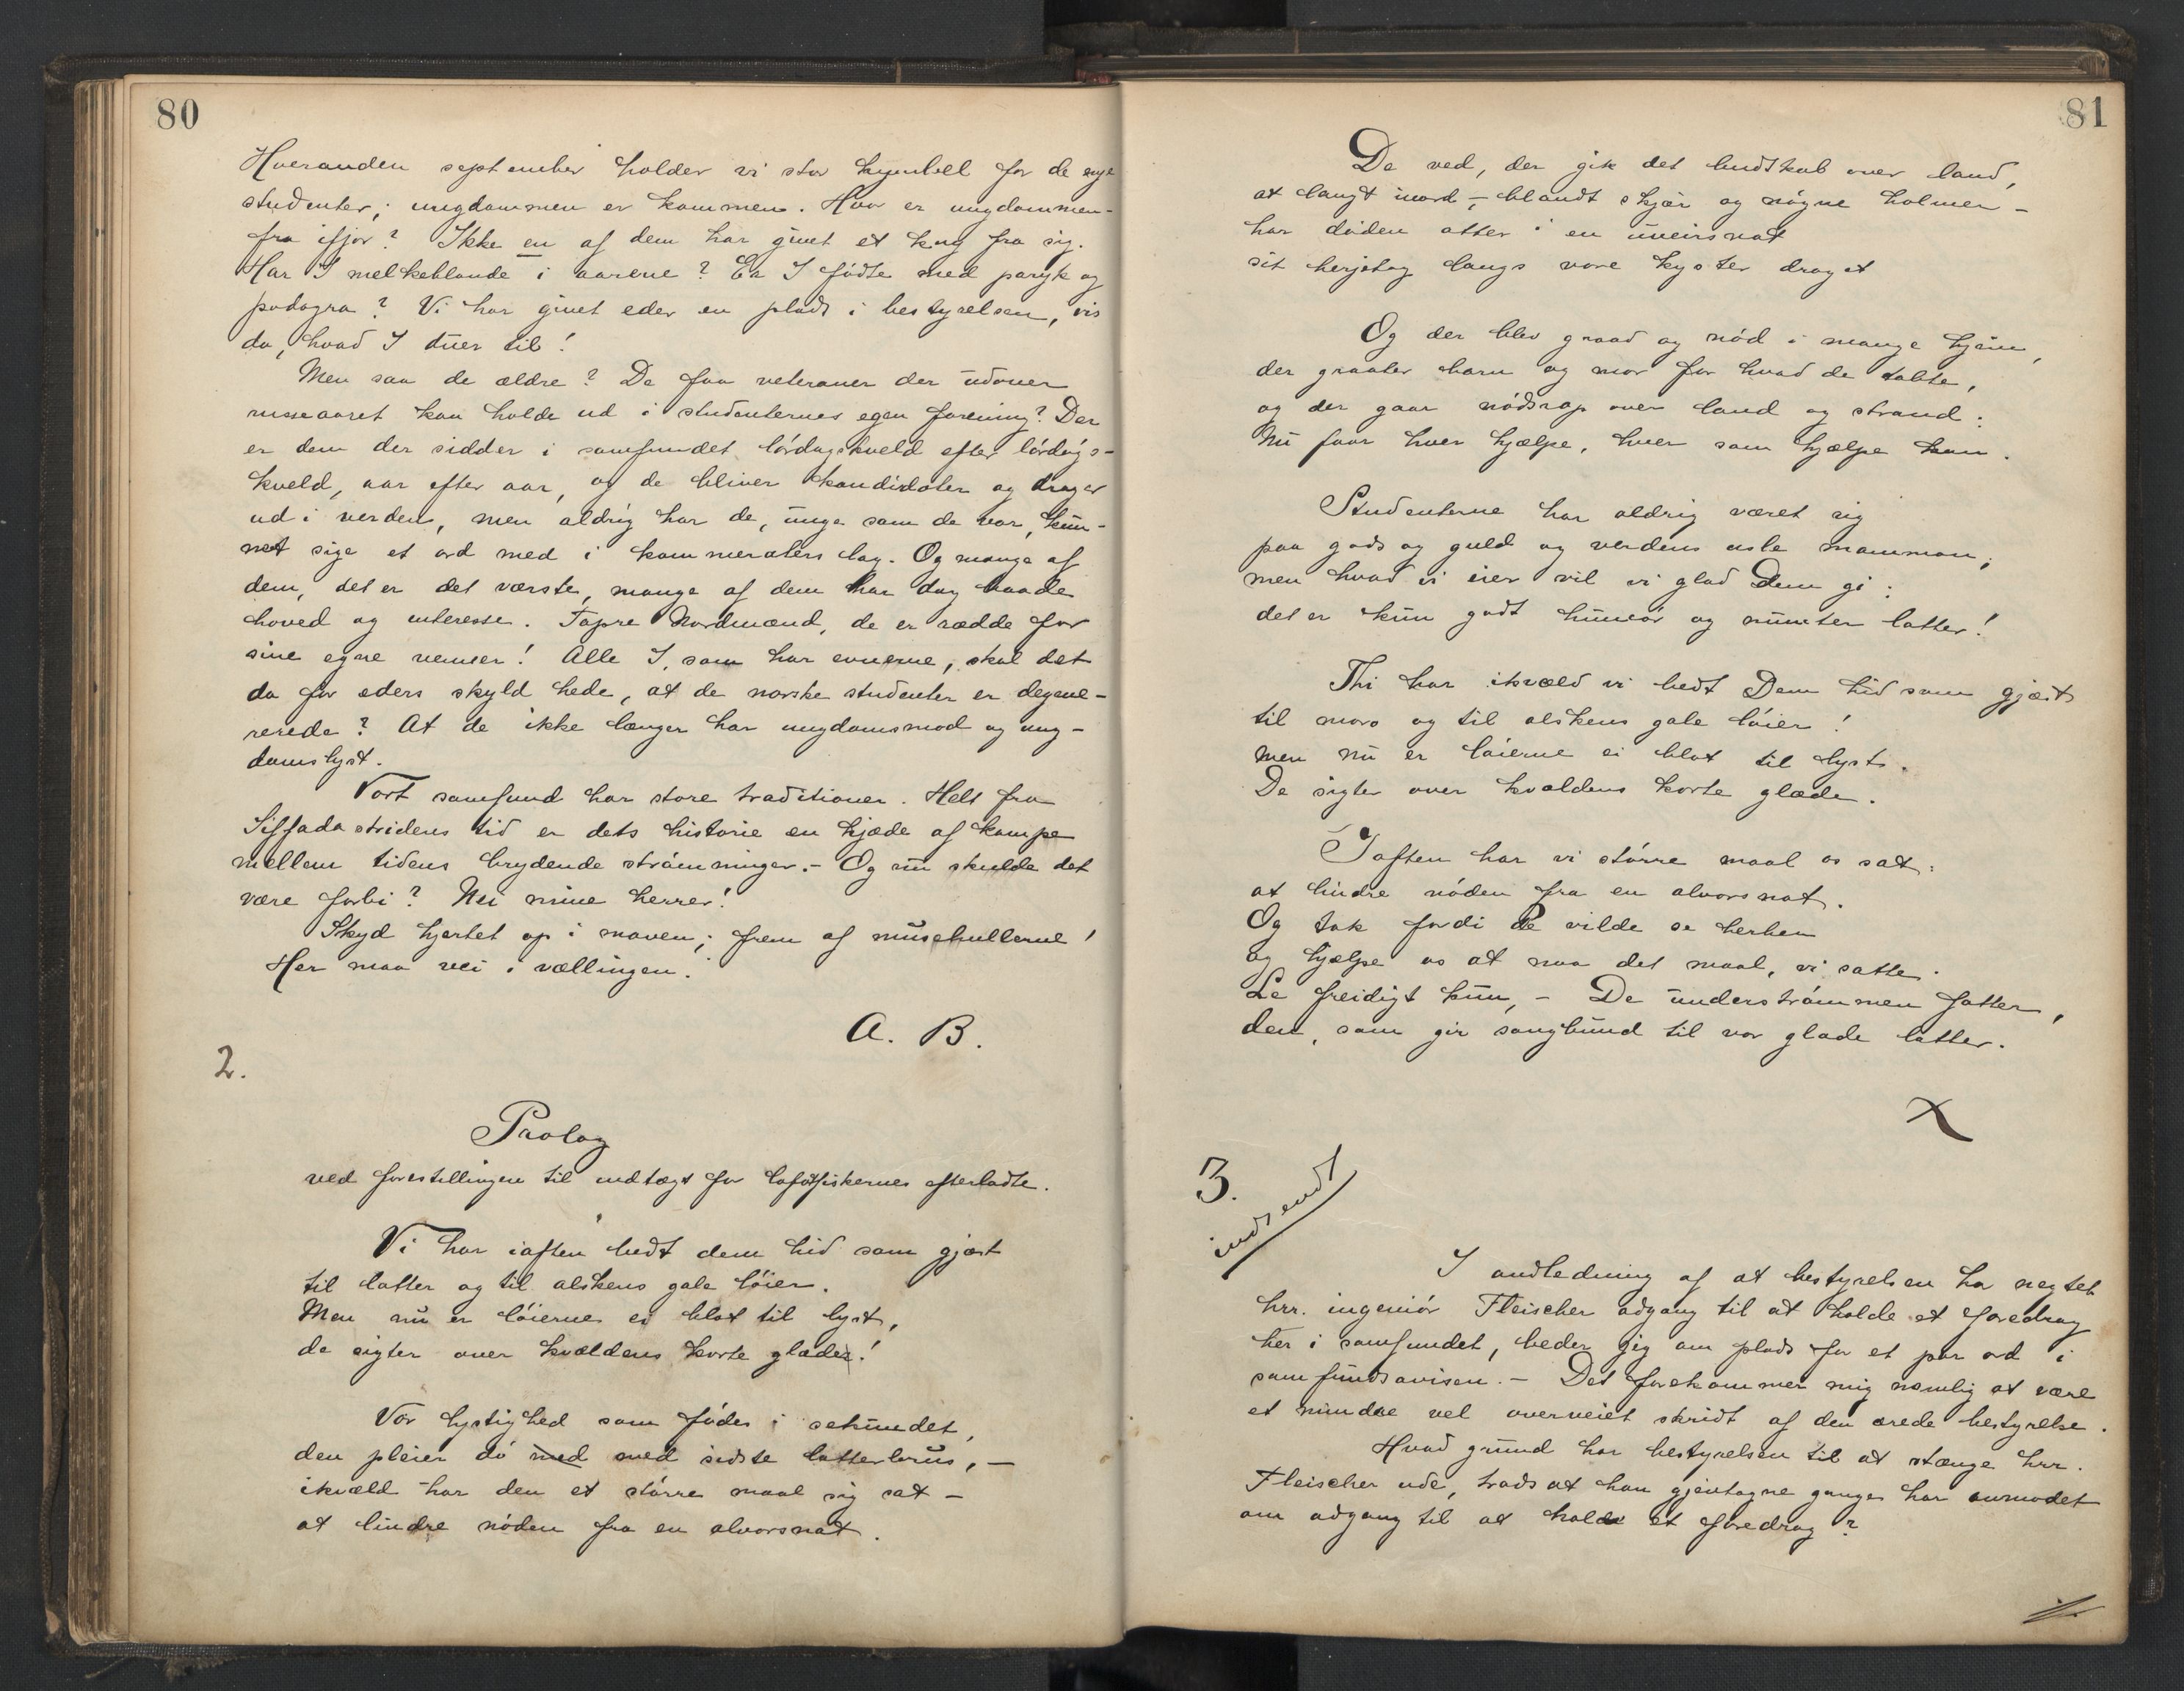 80
Hveranden september holder vi stor kyndell for de nye
studenter; ungdommen er kommen. Hvor er ungdommen
fra ifjor? Ikke en af dem har givet et kny fra sig.
Har I melkeblande i aarene? Er I fødte med paryk og
podagra? Vi har givet eder en plads i bestyrelsen, vis
da, hvad I duer til!
Men saa de ældre? De faa veteraner der udover
russeaaret kan holde ud i studenternes egen forening? Der
er dem der sidder i samfundet lørdagskveld efter lørdags-
kveld, aar efter aar, og de bliver kandidater og drager
ud i verden, men aldrig har de, unge som de var, kun-
net sige et ord med i kammeraters lag. Og mange af
dem, det er det værste, mange af dem har dog baade
hoved og interesse. Tapre Nordmænd, de er rædde for
sine egne venner! Alle I, som har evnerne, skal det
da for eders skyld hede, at de norske studenter er degene-
rerede? At de ikke længer har ungdomsmod og ung-
domslyst.
Vort samfund har store traditioner. Helt fra
Siffadastridens tid er dets historie en kjæde af kampe
mellem tidens brydende strømninger. – Og nu skulde det
være forbi? Nei mine herrer!
Skyd hjertet op i maven; frem af musehullerne!
Her maa rei i vællingen.
A. B.
2.
Prolog
ved forestillingen til indtægt for lofotfiskernes efterladte.
Vi har iaften budt dem hid som gjæst
til latter og til alskens gale løier.
Men nu er løierne ei blot til lyst,
de sigter over kvældens korte glæder!
Vor lystighed som fødes i sekundet,
den pleier dø med med sidste latterbrus, –
ikvæld har den et større maal sig sat –
at lindre nøden fra en alvorsnat.
81
De ved, der gik det budskab over land,
at langt mord, – blandt skjær og nøgne holmer –
har døden atter i en uveirsnat
sit herjetog langs vore kyster draget
Og der blev graad og nød i mange hjem,
der graater barn og mor for hvad de tabte,
og der gaar nødsrop over land og strand:
Nu faar hver hjælpe, hver som hjælpe kan.
Studenterne har aldrig været rig
paa gods og guld og verdens usle mammon;
men hvad vi eier vil vi glad Dem gi:
det er kun godt humør og munter latter!
Thi har ikvæld vi bedt Dem hid som gjæst
til moro og til alskens gale løier!
men nu er løierne ei blot til lyst.
De sigter over kvældens korte glæde.
I aften har vi større maal os sat:
at lindre nøden fra en alvorsnat.
Og tak fordi De vilde se herhen
og hjælpe os at naa det maal, vi satte.
Le freidigt kun, – De understrømmen fatter,
den, som gir sangbund til vor glade latter.
X
3.
indsendt
I andledning af at bestyrelsen ha negtet
hrr. ingeniør Fleischer adgang til at holde et foredrag
her i samfundet, beder jeg om plads for et par ord i
samfundsavisen. – Det forekommer mig nemlig at være
et mindre vel overveiet skridt af den ærede bestyrelse.
Hvad grund har bestyrelsen til at stænge hrr.
Fleischer ude, trods at han gjentagne ganger har anmodet
om adgang til at holde et foredrag?